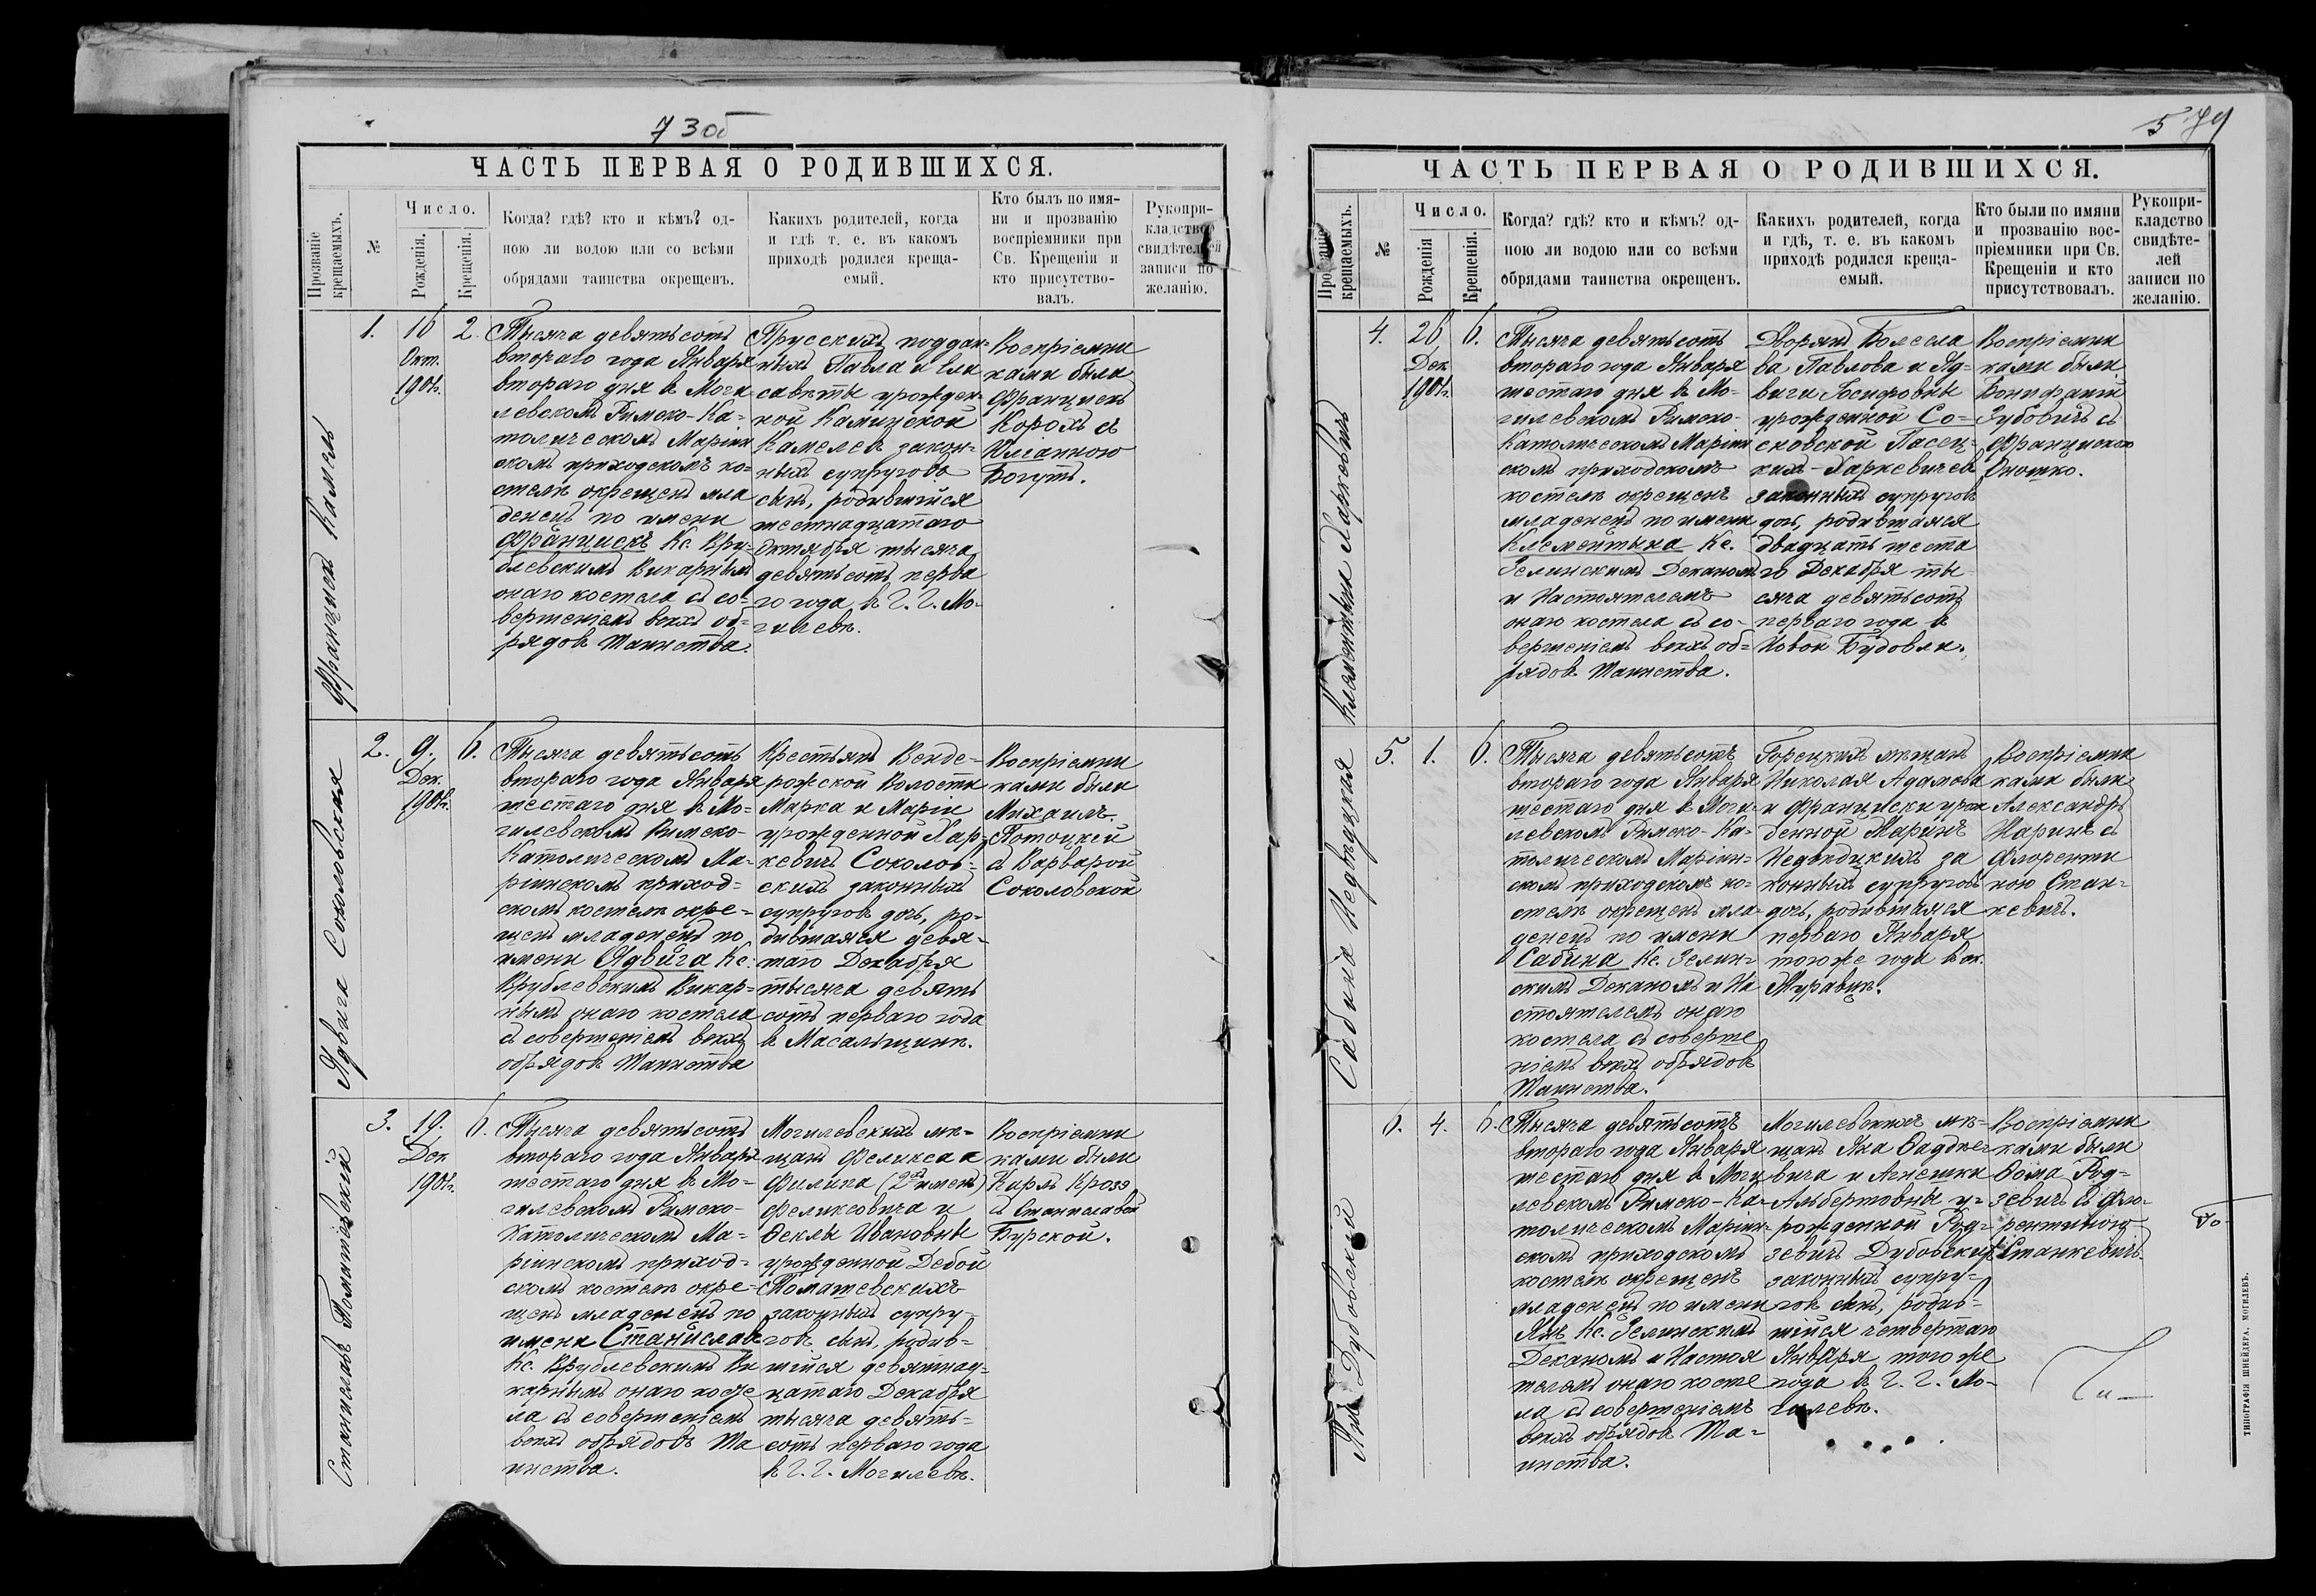 73об
ЧАСТЬ ПЕРВАЯ О РОДИВШИХСЯ.
Прозваніе крещаемыхъ.
№
Число.
Рожденія.
Крещенія.
Когда? гдѣ? кто и кѣмъ? од-
ною ли водою или со всѣми
обрядами таинства окрещенъ.
Какихъ родителей, когда
и гдѣ т. е. въ какомъ
приходѣ родился креща-
емый.
Кто былъ по имя-
ни и прозванію
воспріемники при
Св. Крещеніи и
кто присутство-
валъ.
Рукопри-
кладство
свидѣтелей
записи по
желанію.
Францискъ Камель
1.
16
Окт.
1901г.
2.
Тысяча девятьсотъ
втораго года Января
втораго дня в Моги
левскомъ Римско-Ка-
толическомъ Маріин
скомъ приходскомъ ко-
стелѣ окрещенъ мла
денецъ по имени
Францискъ Кс. Вру-
блевскимъ Викарнымъ
онаго костела съ со-
вершеніемъ всѣхъ об-
рядовъ Таинства.
Прусскихъ поддан-
ныхъ Павла и Ели
саветы урожден-
ной Каминской
Камелевъ закон-
ныхъ супруговъ
сынъ, родившійся
шестнадцатаго
Октября тысяча
девятьсотъ перва
го года в Г. Г. Мо-
гилевѣ.
Воспріемни
ками были
Францискъ
Король съ
Юліанною
Богутъ.
Ядвига Соколовская
2.
9.
Дек.
1901г.
6.
Тысяча девятьсотъ
втораго года Января
шестаго дня в Мо-
гилевскомъ Римско-
Католическомъ Ма-
ріинскомъ приход-
скомъ костелѣ окре-
щенъ младенецъ по
имени Ядвига Кс.
Врублевскимъ Викар-
нымъ онаго костела
съ совершеніемъ всѣхъ
обрядовъ Таинства
Крестьянъ Венде-
рожской Волости
Марка и Маріи
урожденной Хар-
кевичъ Соколов-
скихъ законныхъ
супруговъ дочь, ро-
дившаяся девя-
таго Декабря
тысяча девять
сотъ перваго года
в Масальщинѣ.
Воспріемни
ками были
Михаилъ
Потоцкій
съ Варварой
Соколовской
Станиславъ Томашевскій
3.
19.
Дек
1901г.
6.
Тысяча девятьсотъ
втораго года Января
шестаго дня в Мо-
гилевскомъ Римско-
Католическомъ Ма-
ріинскомъ приход-
скомъ костелѣ окре-
щенъ младенецъ по
имени Станиславъ
Кс. Врублевскимъ Ви
карнымъ онаго косте
ла съ совершеніемъ
всѣхъ обрядовъ Та
инства.
Могилевскихъ мѣ-
щанъ Феликса а
Филипа (2хъ именъ)
Феликсовича и
Феклы Ивановны
урожденной Дебой
Томашевскихъ
законныхъ супру-
говъ сынъ, родив-
шійся девятнад-
цатаго Декабря
тысяча девять-
сотъ перваго года
в Г. Г. Могилевѣ.
Воспріемни
ками были
Карлъ Крозэ
съ Станиславой
Бурской.
579
ЧАСТЬ ПЕРВАЯ О РОДИВШИХСЯ.
Прозваніе крещаемыхъ.
№
Число.
Рожденія
Крещенія.
Когда? гдѣ? кто и кѣмъ? од-
ною ли водою или со всѣми
обрядами таинства окрещенъ.
Какихъ родителей, когда
и гдѣ, т. е. въ какомъ
приходѣ родился креща-
емый.
Кто были по имяни
и прозванію вос-
пріемники при Св.
Крещеніи и кто
присутствовалъ.
Рукопри-
кладство
свидѣте-
лей
записи по
желанію.
Клементина Харкевичъ
4.
26
Дек
1901г.
6.
Тысяча девятьсотъ
втораго года Января
шестаго дня в Мо-
гилевскомъ Римско-
Католическомъ Маріин
скомъ приходскомъ
костелѣ окрещенъ
младенецъ по имени
Клементина Кс.
Зелинскимъ Деканомъ
и Настоятелемъ
онаго костела съ со-
вершеніемъ всѣхъ об-
рядовъ Таинства.
Дворянъ Болесла
ва Павлова и Яд-
виги Іосифовны
урожденной Со-
сновской Пасец-
кихъ-Харкевичей
законныхъ супруговъ
дочь, родившаяся
двадцать шеста
го Декабря ты
сяча девятьсотъ
перваго года в
Новой Будовли.
Воспріемни
ками были
Бонифатій
Зубовичъ съ
Францискою
Оношко.
Сабина Недвѣдцкая
5.
1.
6.
Тысяча девятьсотъ
втораго года Января
шестаго дня в Моги-
левскомъ Римско-Ка-
толическомъ Маріин-
скомъ приходскомъ ко-
стелѣ окрещенъ мла-
денецъ по имени
Сабина Кс. Зелин-
скимъ Деканомъ и На
стоятелемъ онаго
костела съ соверше
ніемъ всѣхъ обрядовъ
Таинства.
Горецкихъ мѣщанъ
Николая Адамова
и Франциски урож
денной Маринъ
Недвѣдцкихъ за
конныхъ супруговъ
дочь, родившаяся
перваго Января
тогоже года в ок.
Журавцѣ.
Воспріемни
ками были
Александръ
Маринъ съ
Флоренти
ною Стан-
кевичъ.
Янъ Дубовскій
6.
4.
6.
Тысяча девятьсотъ
втораго года Января
шестаго дня в Моги
левскомъ Римско-Ка-
толическомъ Маріин-
скомъ приходскомъ
костелѣ окрещенъ
младенецъ по имени
Янъ Кс. Зелинскимъ
Деканомъ и Настоя
телемъ онаго косте
ла съ совершеніемъ
всѣхъ обрядовъ Та-
инства.
Могилевскихъ мѣ-
щанъ Яна Фаддее-
вича и Агнешки
Альбертовны у-
рожденной Род-
зевичъ Дубовскихъ
законныхъ супру-
говъ сынъ, родив-
шійся четвертаго
Января того же
года в Г. Г. Мо-
гилевѣ.
Воспріемни
ками были
Фома Род-
зевичъ съ Фло-
рентиною
Станкевичъ
ТИПОГРАФІЯ ШНЕЙДЕРА. МОГИЛЕВЪ.